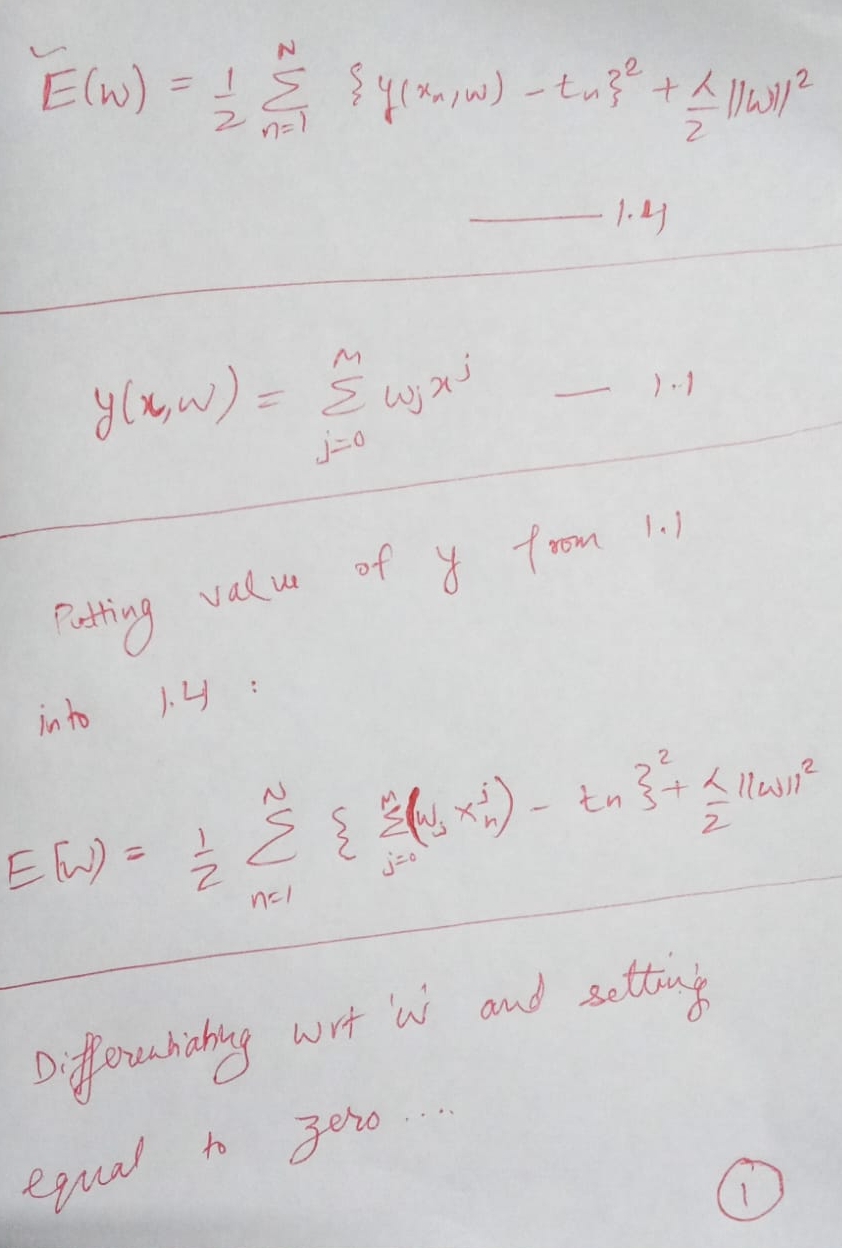 Ẽ(w) = 1/2 Σ_{n=1}^{N} { y(x_n, w) - t_n }² + λ/2 ||w||²
—— 1.4
y(x, w) = Σ_{j=0}^{M} w_j x^j — 1.1
Putting value of y from 1.1
into 1.4 :
E(w) = 1/2 Σ_{n=1}^{N} { Σ_{j=0}^{M} (w_j x_n^j) - t_n }² + λ/2 ||w||²
Differentiating wrt 'w' and setting
equal to zero ....
1